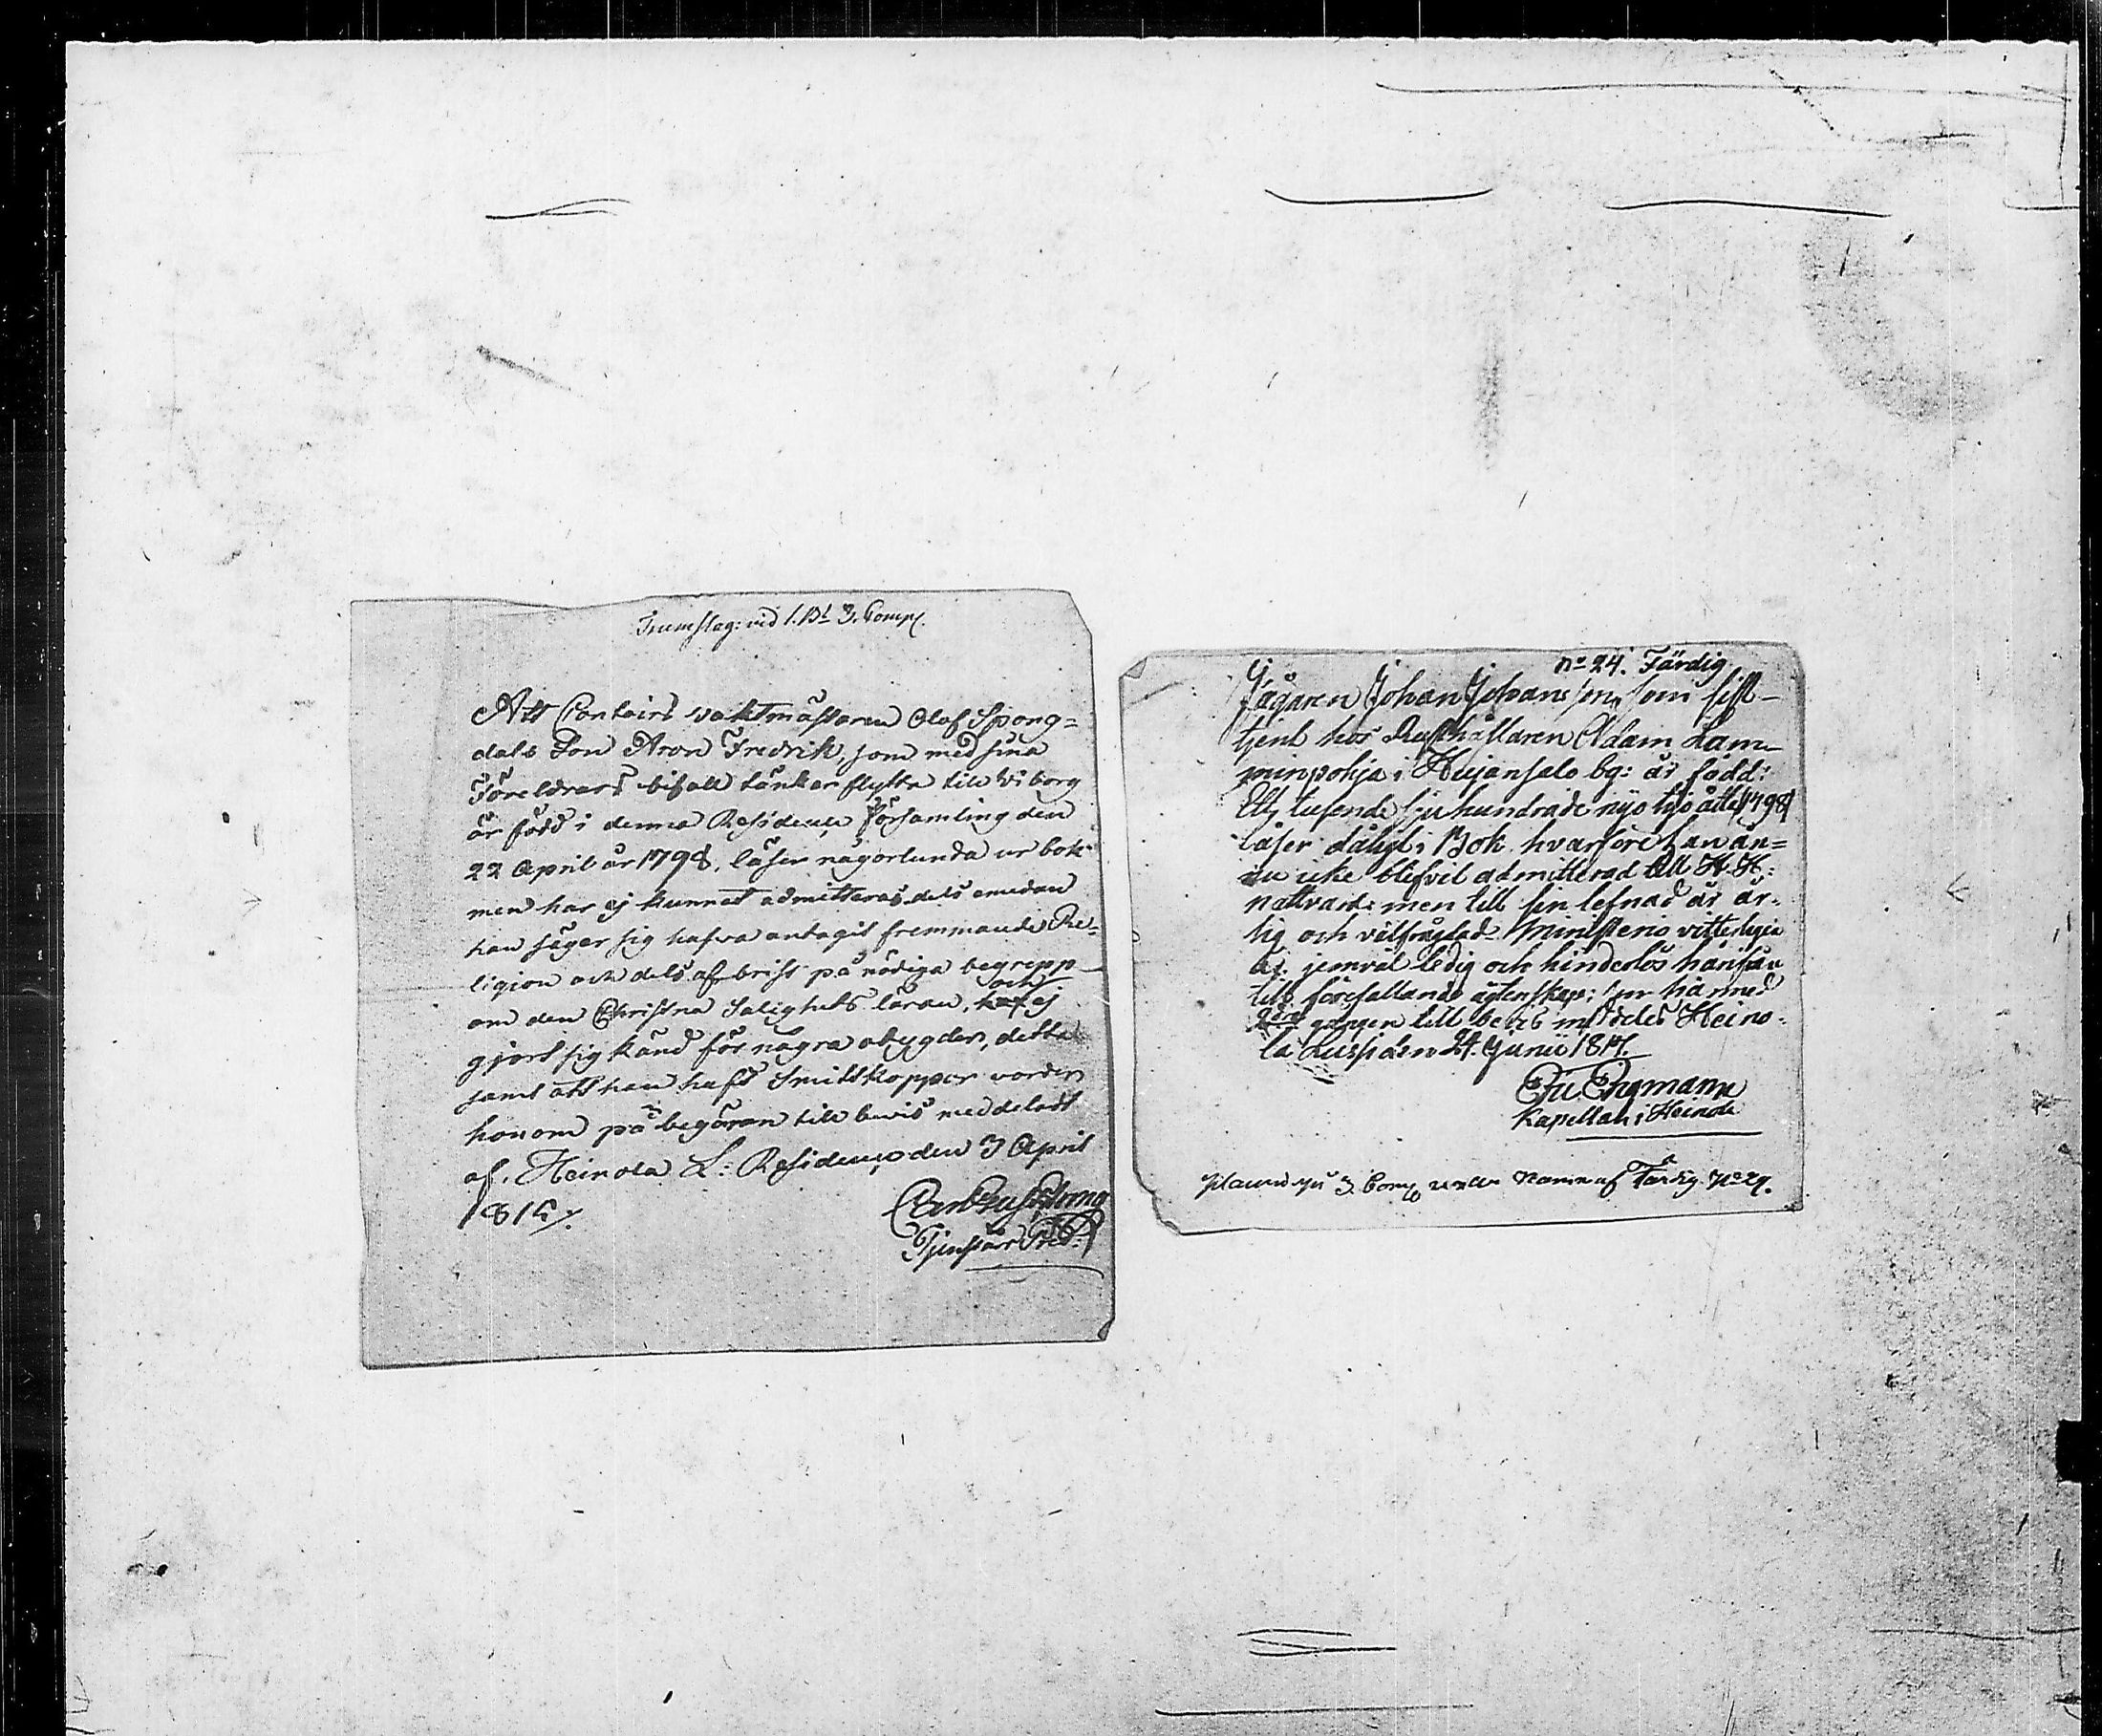 Trumslag: vid 1. Bt 3. Comp.
Att Contoirs vaktmästaren Olof Spong=
dals Son Aron Fredrik, som med sina
Föreldrars bifall tänker flytta till Wiborg
är född i denna Residence Församling den
22 April år 1798, läser någorlunda ur bok
men har ej kunnat admitteras dels emedan
han säger sig hafva antagit fremmande Re=
ligion och dels af brist på nödiga begrepp
om den Christna Salighets läran, och ej
gjort sig känd för några obygder, detta
samt att han haft Smittkoppor warder
honom på begäran till bevis meddeladt
af. Heinola L: Residence den 3 April
181
Tjenstför. Pred:
no 24. Färdig
Jägaren Johan Johansson, som sist
tjent hos Rusthållaren Adam Lam=
minpohja i Hujansalo by: är född:
Ett tusende sju hundrade nijo tijo åtta 1798
läser dåligt i Bok hvarföre han än=
nu icke blefvit admitterad till H. H.
nattvard: men till sin lefnad är är=
lig och välfrägdad Ministerio vitterligen
är jemväl ledig och hinderlös härifrån
till förefallande äktenskap; som härmed
2dra gången till bevis meddelas Heino=
la Lussi den 24. Junii 1817.
Engmann
Kapellan i Heinola
3 Comp under Namn af Färdig No 24.